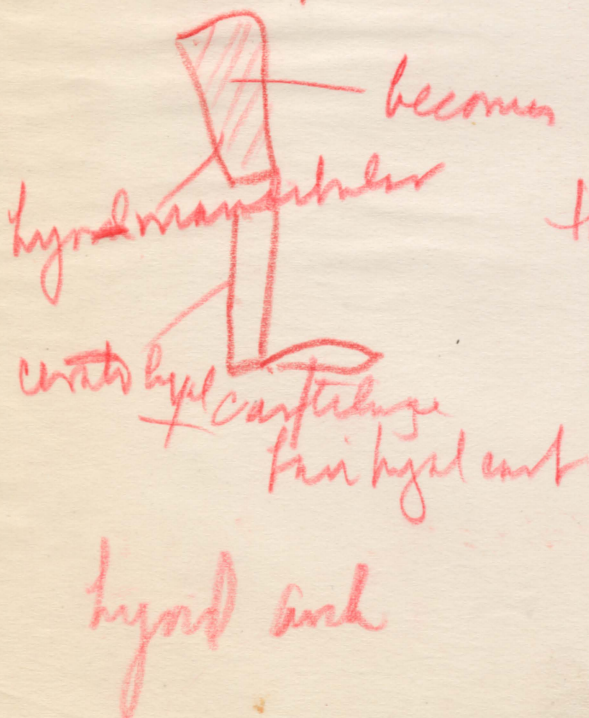 becomes
hyomandibular
ceratohyal cartilage
hyal cart
hyoid arch